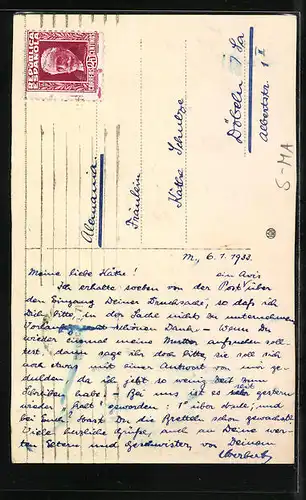 REPUBLICA
ESPAÑOLA
25 CENTIMOS
Alemania
Fräulein
Käthe Schulze
Döbeln i/Sa
Albertstr. 1 II
S-MA
M, 6.1.1933.
Meine liebe Käthe!
ein Avis
Ich erhalte soeben von der Post über
den Eingang Deiner Drucksache, so daß ich
Dich bitte, in der Sache nichts zu unternehmen
Vorläufig schönen Dank. – Wenn Du
wieder einmal meine Mutter aufsuchen soll-
test, dann sage ihr doch bitte, sie soll sich
noch etwas mit einer Antwort von mir ge-
dulden, da ich jetzt so wenig Zeit zum
Schreiben habe! Bei uns ist es seit gestern
wieder "kalt" geworden: 1° über Null, und
bei Euch? Hast Du die Bretteln schon gewachst?
Viele herzliche Grüße, auch an Deine wer-
ten Eltern und Geschwister, von Deinem
Herbert